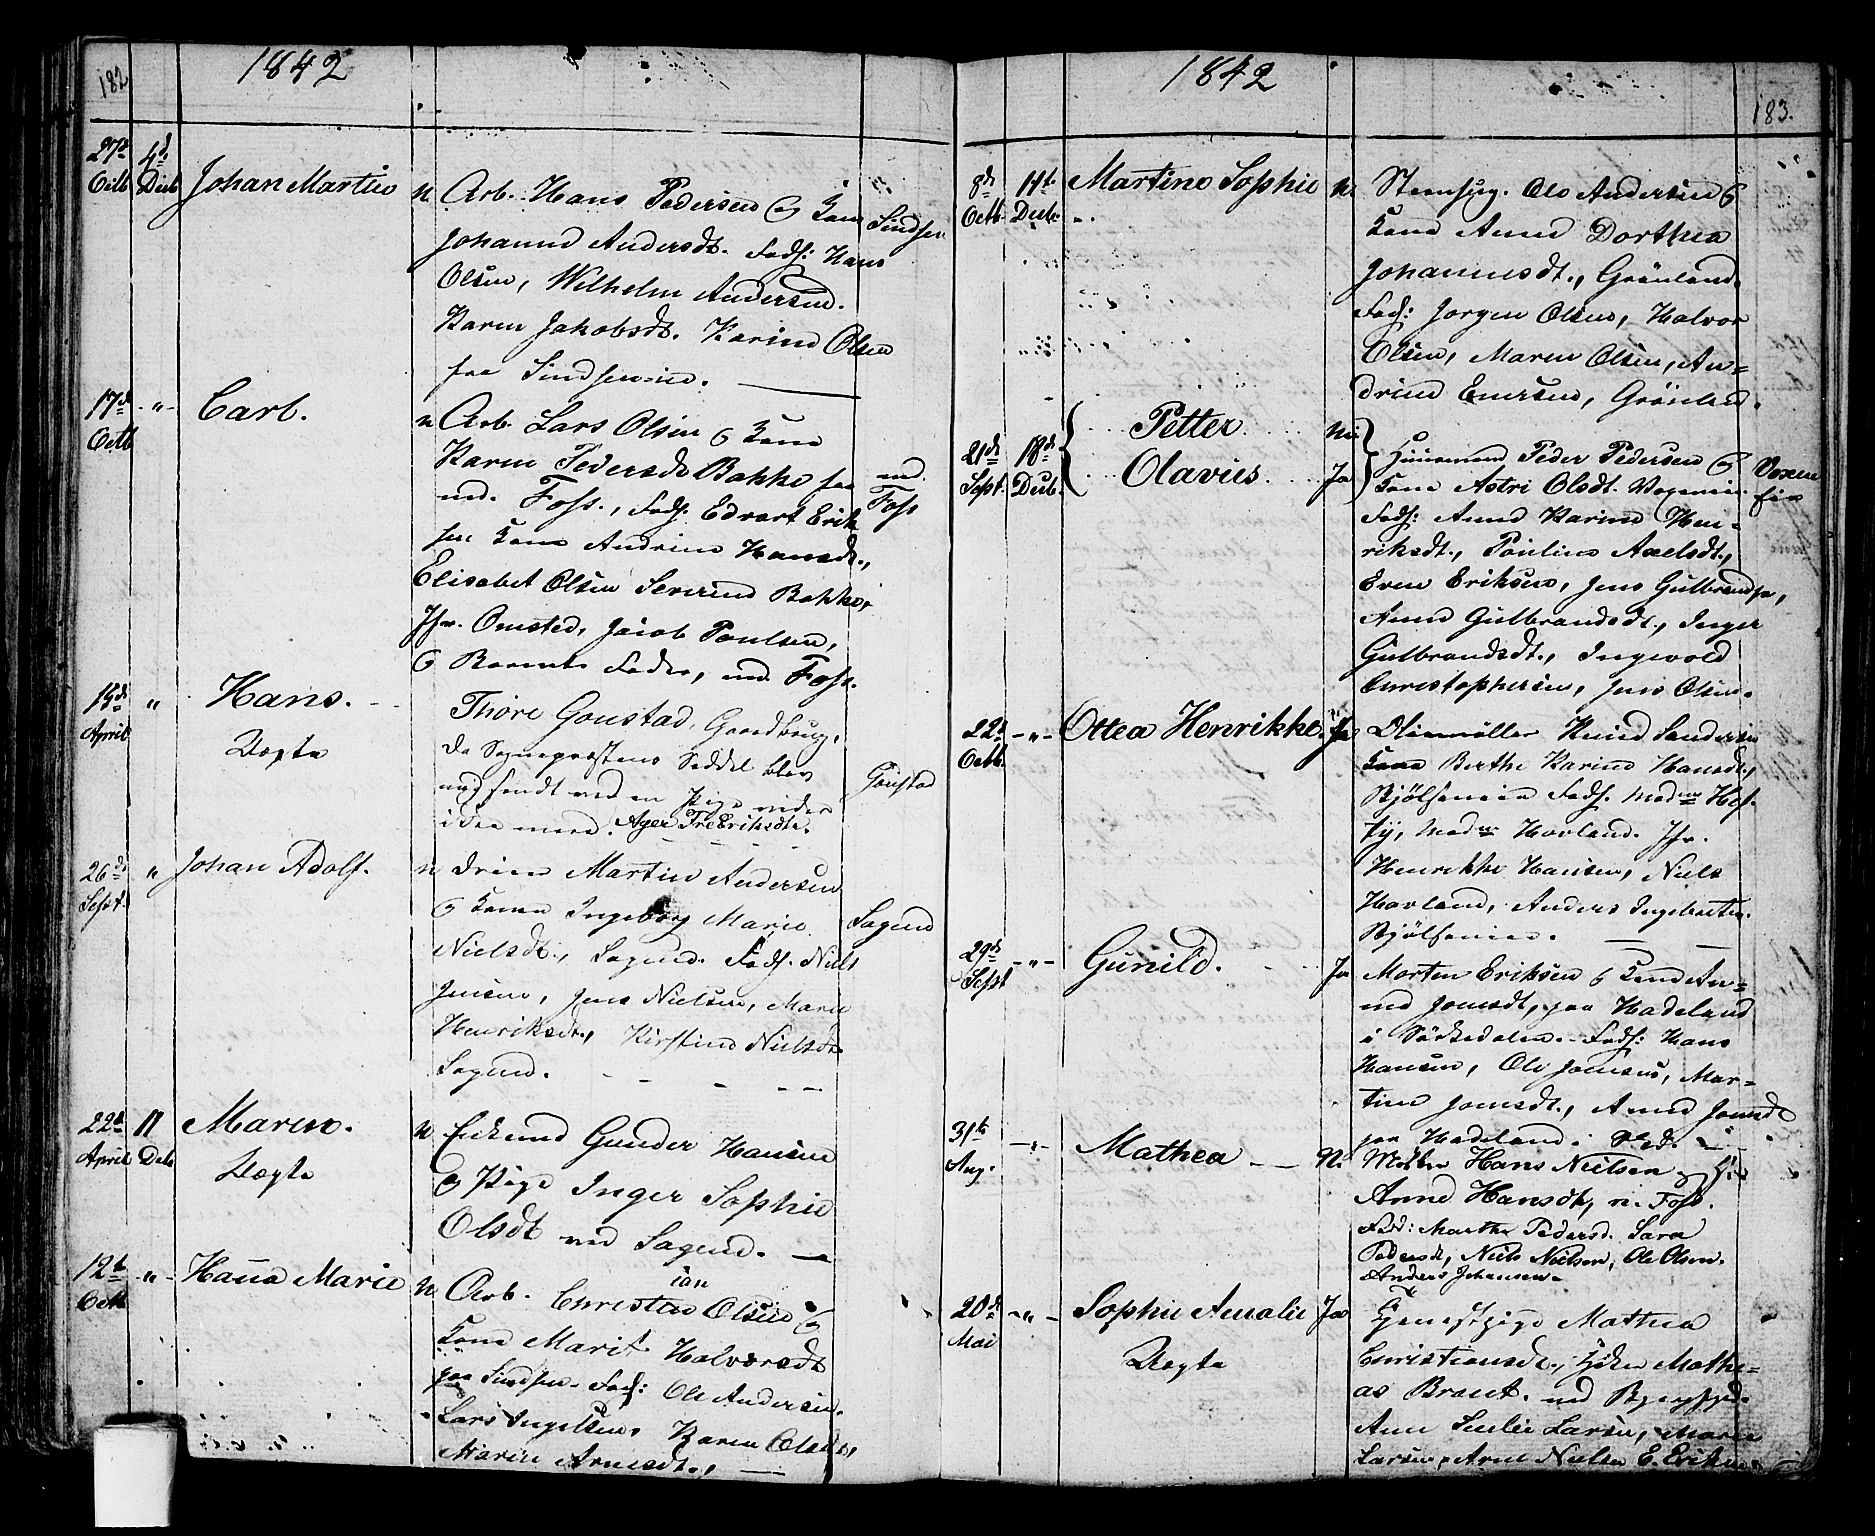 182
1842
27d Octb
4d Decb
Johan Martin
n Arb. Hans Pedersen & Kone
Johanne Andersdt. Fads: Hans
Olsen, Wilhelm Andersen.
Karen Jakobsdt. Karine Olsen
fra Sindsen
Sindsen
17d Octb
-"-
Carl.
n Arb. Lars Olsen & Kone
Karen Pedersdt Bakke
ved Foss., Fads. Edvart Erik
sen Kone Andrine Hansdt.,
Elisabet Olsen Severine Bakke,
Jfr. Omsted, Jacob Poulsen,
& Barnets Fader, ved Foss.
ved Foss
April
"
Hans.
Uægte
Thore Goustad, Gaardbrug,
da Sognepræstens Seddel blev
nedsendt ved en Pige
Ager Fredriksdt.
Goustad
26d Sept.
"
Johan Adolf.
n Martin Andersen
& Kone Ingeborg Marie
Nielsdt., Sagene. Fads. Niels
Jensen, Jens Nielsen, Marie
Henriksdt., Kirstine Nielsdt
Sagene.
Sagene
22d April
11 Decb
Maren.
Uægte
n Enkemd Gunder Hansen
& Pige Inger Sophie
Olsdt ved Sagene.
12t Octb
-"-
Hana Marie
n Arb. Christian Olsen &
Kone Marit Halvorsdt
paa Sindsen. Fads: Ole Andersen.
Lars Ingelsen, Karen Olsdt,
Maren Arnesdt.,
1842
183.
8d Octb.
11t Decb.
Martine Sophie
N. Steenhug. Ole Andersen &
Kone Anne Dorthea
Johannesdt., Grønland.
Fads: Jørgen Olsen, Halvor
Olsen, Maren Olsen, An=
drine Enersen, Grønland.
21d Sept.
18d Decb.
Petter. Nei
Olavus. Ja
Huusmand Peder Pedersen &
Kone Astri Olsdt. Voxeneie
Fads: Anne Karine Hen=
riksdt., Pauline Axelsdt.,
Even Eriksen, Jens Gulbrandsen,
Anne Gulbrandsdt., Inger
Gulbrandsdt., Ingevold
Christophersen, Jens Olsen.
Voxen
eie
22d Octb.
-"-
Ottea Henrikke. Ja
Oliemøller Knud Sandersen
Kone Berthe Karine Hansdt.,
Bjølseneie Fads. Madme
Madme Hovland. Jfr.
Henrikke Hansen, Niels
Hovland, Anders Ingebretsen
Bjølseneie.
29d Sept
-"-
Gunild. Ja
Morten Eriksen & Kone An=
ne Jonsdt, paa Hadeland
i Sørkedalen. Fads: Hans
Hansen, Ole Jonsen, Mar=
tin Jonsdt., Anne Jonsdt
paa Hadeland i Sd.
31te Aug.
-"-
Mathea N.
Hans Nielsen
Anne Hansdt, v. Foss.
Fad: Marthe Pedersd. Sara
Pedersdt, Niels Nielsen, Ole Olsen.
Anders Johansen.
20d Mai
-"-
Sophie Amalie Ja
Uægte
Tjenestpige Mathea
Christiansdt., Mathi=
as Brant. ved
Ane Larsen, Maren
Larsen, Arne Nielsen E. Eriksen